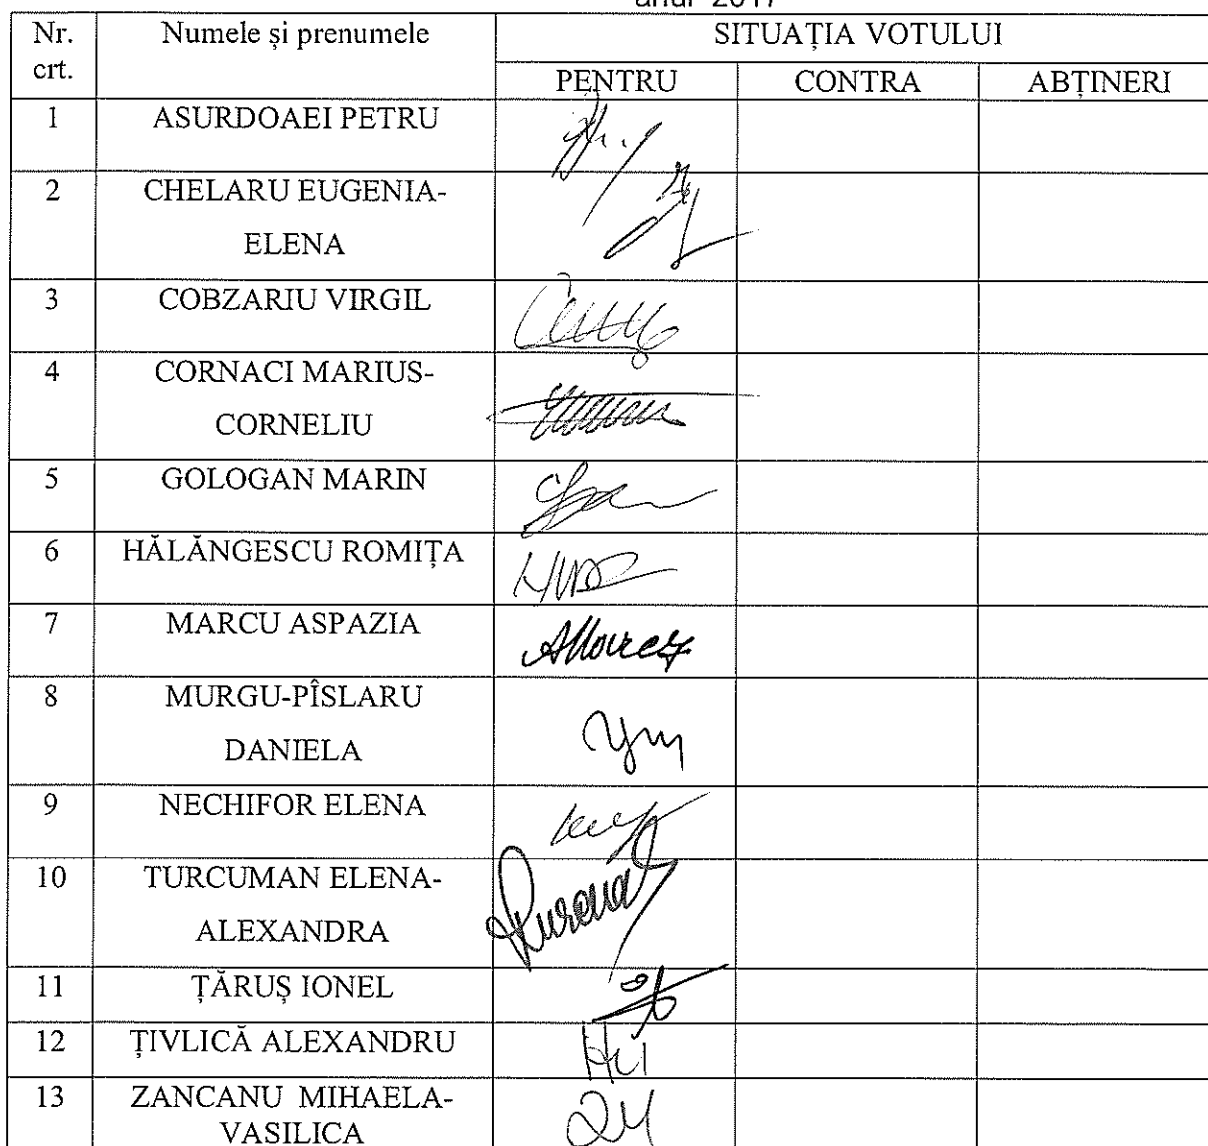 anul 2017
Nr. crt. Numele și prenumele SITUAȚIA VOTULUI
PENTRU CONTRA ABȚINERI
1 ASURDOAEI PETRU
2 CHELARU EUGENIA-
ELENA
3 COBZARIU VIRGIL
4 CORNACI MARIUS-
CORNELIU
5 GOLOGAN MARIN
6 HĂLĂNGESCU ROMIȚA
7 MARCU ASPAZIA
8 MURGU-PÎSLARU
DANIELA
9 NECHIFOR ELENA
10 TURCUMAN ELENA-
ALEXANDRA
11 ȚĂRUȘ IONEL
12 ȚIVLICĂ ALEXANDRU
13 ZANCANU MIHAELA-
VASILICA